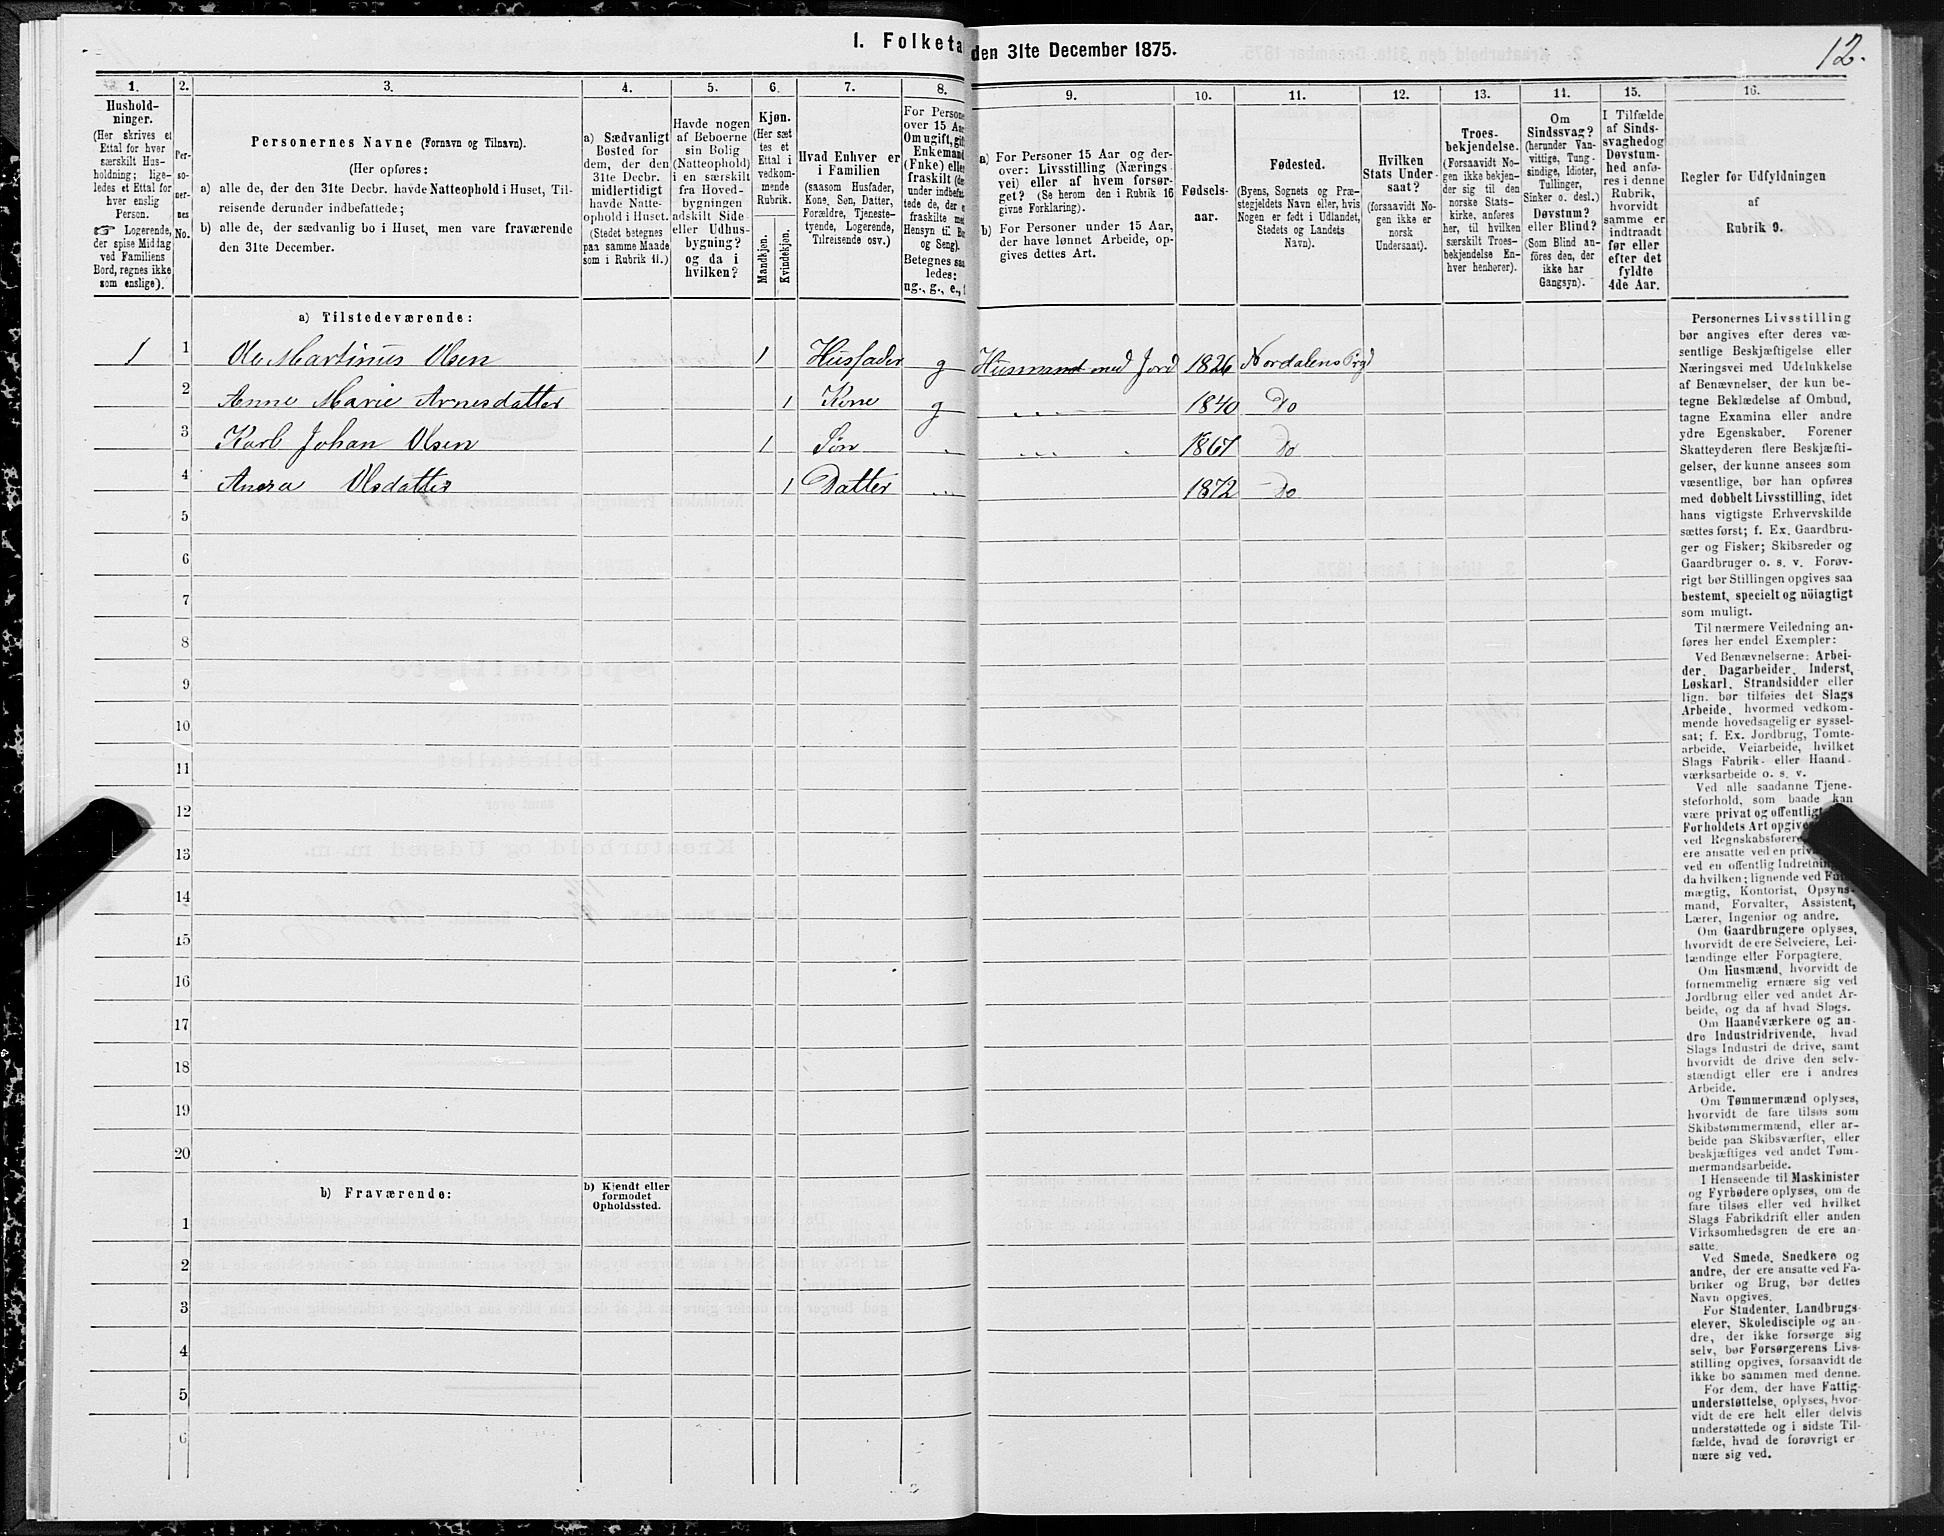 I. Folketa den 31te December 1875.
12.
1. 2. 3. 4. 5. 6. 7. 8. 9. 10. 11. 12. 13. 14. 15. 16.
Hushold-
ninger.
(Her skrives et
Ettal for hver
særskilt Hus-
holdning; lige-
ledes et Ettal for
hver enslig
Person.
☞ Logerende,
der spise Middag
ved Familiens
Bord, regnes ikke
som enslige).
Per-
so-
ner-
nes
No.
Personernes Navne (Fornavn og Tilnavn).
(Her opføres:
a) alle de, der den 31te Decbr. havde Natteophold i Huset, Til-
reisende derunder indbefattede;
b) alle de, der sædvanlig bo i Huset, men vare fraværende
den 31te December.
a) Sædvanligt
Bosted for
dem, der den
31te Decbr.
midlertidigt
havde Natte-
ophold i Huset.
(Stedet betegnes
paa samme Maade
som i Rubrik 11.)
Havde nogen
af Beboerne
sin Bolig
(Natteophold)
i en særskilt
fra Hoved-
bygningen
adskilt Side-
eller Udhus-
bygning?
og da i
hvilken?
Kjøn.
(Her sæt
tes et
Ettal i
vedkom-
mende
Rubrik.
Mandkjøn.
Kvindekjøn.
Hvad Enhver er
i Familien
(saasom Husfader,
Kone, Søn, Datter,
Forældre, Tjeneste-
tyende, Logerende,
Tilreisende osv.)
For Persone
over 15 Aa
Om ugift, gif
Enkemand
(Enke) elle
fraskilt (de
under indbefat
tede de, der e
fraskilte med
Hensyn til Bo
og Seng).
Betegnes saa
ledes:
ug., g., e., f
a) For Personer 15 Aar og der-
over: Livsstilling (Nærings
vei) eller af hvem forsør-
get? (Se herom den i Rubrik 16
givne Forklaring).
b) For Personer under 15 Aar,
der have lønnet Arbeide, op-
gives dettes Art.
Fødsels-
aar.
Fødested.
(Byens, Sognets og Præ-
stegjeldets Navn eller, hvis
Nogen er født i Udlandet,
Stedets og Landets
Navn).
Hvilken
Stats Under-
saat?
(forsaavidt No-
gen ikke er
norsk
Undersaat).
Troes-
bekjendelse.
(Forsaavidt No-
gen ikke bekjen-
der sig til den
norske Stats-
kirke, anføres
her, til hvilken
særskilt Troes-
bekjendelse En-
hver henhører).
Om
Sindssvag?
(herunder Van-
vittige, Tung-
sindige, Idioter,
Tullinger,
Sinker o. desl.)
Døvstum?
eller Blind?
(Som Blind an-
føres den, der
ikke har
Gangsyn).
I Tilfælde
af Sinds-
svaghed og
Døvstum-
hed anfø-
res i denne
Rubrik,
hvorvidt
samme er
indtraadt
før eller
efter det
fyldte
4de Aar.
Regler for Udfyldningen
af
Rubrik 9.
a) Tilstedeværende:
1 1 Ole Martinus Olsen 1 Husfader g Husmand med Jord 1826 Nordalens Prgd
2 Anne Marie Arnesdatter 1 Kone g 1840 Do
3 Karl Johan Olsen 1 Søn 1867 Do
4 Anna Olsdatter 1 Datter 1872 Do
5
6
7
8
9
10
11
12
13
14
15
16
17
18
19
20
b) Fraværende:
b) Kjendt eller
formodet
Opholdssted.
1
2
3
4
5
6
Personernes Livsstilling
bør angives efter deres væ-
sentlige Beskjæftigelse eller
Næringsvei med Udelukkelse
af Benævnelser, der kun be-
tegne Beklædelse af Ombud,
tagne Examina eller andre
ydre Egenskaber. Forener
Skatteyderen flere Beskjæfti-
gelser, der kunne ansees som
væsentlige, bør han opføres
med dobbelt Livsstilling, idet
hans vigtigste Erhvervskilde
sættes først; f. Ex. Gaardbru-
ger og Fisker; Skibsreder og
Gaardbruger o. s. v. Forøv-
rigt bør Stillingen opgives saa
bestemt, specielt og nøiagtigt
som muligt.
Til nærmere Veiledning an-
føres her endel Exempler:
Ved Benævnelserne: Arbei-
der, Dagarbeider, Inderst,
Løskarl, Strandsidder eller
lign. bør tilføies det Slags
Arbeide, hvormed vedkom-
mende hovedsagelig er syssel-
sat; f. Ex. Jordbrug, Tomte-
arbeide, Veiarbeide, hvilket
Slags Fabrik- eller Haand-
værksarbeide o. s. v.
Ved alle saadanne Tjene-
steforhold, som baade kan
være privat og offentligt
Forholdets Art opgive
ved Regnskabsførere
ere ansatte ved en priv
ved en offentlig Indretnin
da hvilken; lignende ved Ful
mægtig, Kontorist, Opsyns-
mand, Forvalter, Assistent,
Lærer, Ingeniør og andre.
Om Gaardbrugere oplyses,
hvorvidt de ere Selveiere, Lei-
lændinge eller Forpagtere.
Om Husmænd, hvorvidt de
fornemmelig ernære sig ved
Jordbrug eller ved andet Ar-
beide, og da af hvad Slags.
Om Haandværkere og an-
dre Industridrivende, hvad
Slags Industri de drive, samt
hvorvidt de drive den selv-
stændigt eller ere i andres
Arbeide.
Om Tømmermænd oplyses,
hvorvidt de fare tilsøs som
Skibstømmermænd, eller ar-
beide paa Skibsværfter, eller
beskjæftiges ved andet Tøm-
mermandsarbeide.
I Henseende til Maskinister
og Fyrbødere oplyses, om de
fare tilsøs eller ved hvilket
Slags Fabrikdrift eller anden
Virksomhedsgren de ere an-
satte.
Ved Smede, Snedkere og
andre, der ere ansatte ved Fa-
briker og Brug, bør dettes
Navn opgives.
For Studenter, Landbrugs-
elever, Skoledisciple og an-
dre, der ikke forsørge sig
selv, bør Forsørgerens Livs-
stilling opgives, forsaavidt de
ikke bo sammen med denne.
For dem, der have Fattig-
understøttelse, oplyses, hvor-
vidt de ere helt eller delvis
understøttede og i sidste Til-
fælde, hvad de forøvrigt er-
nære sig ved.